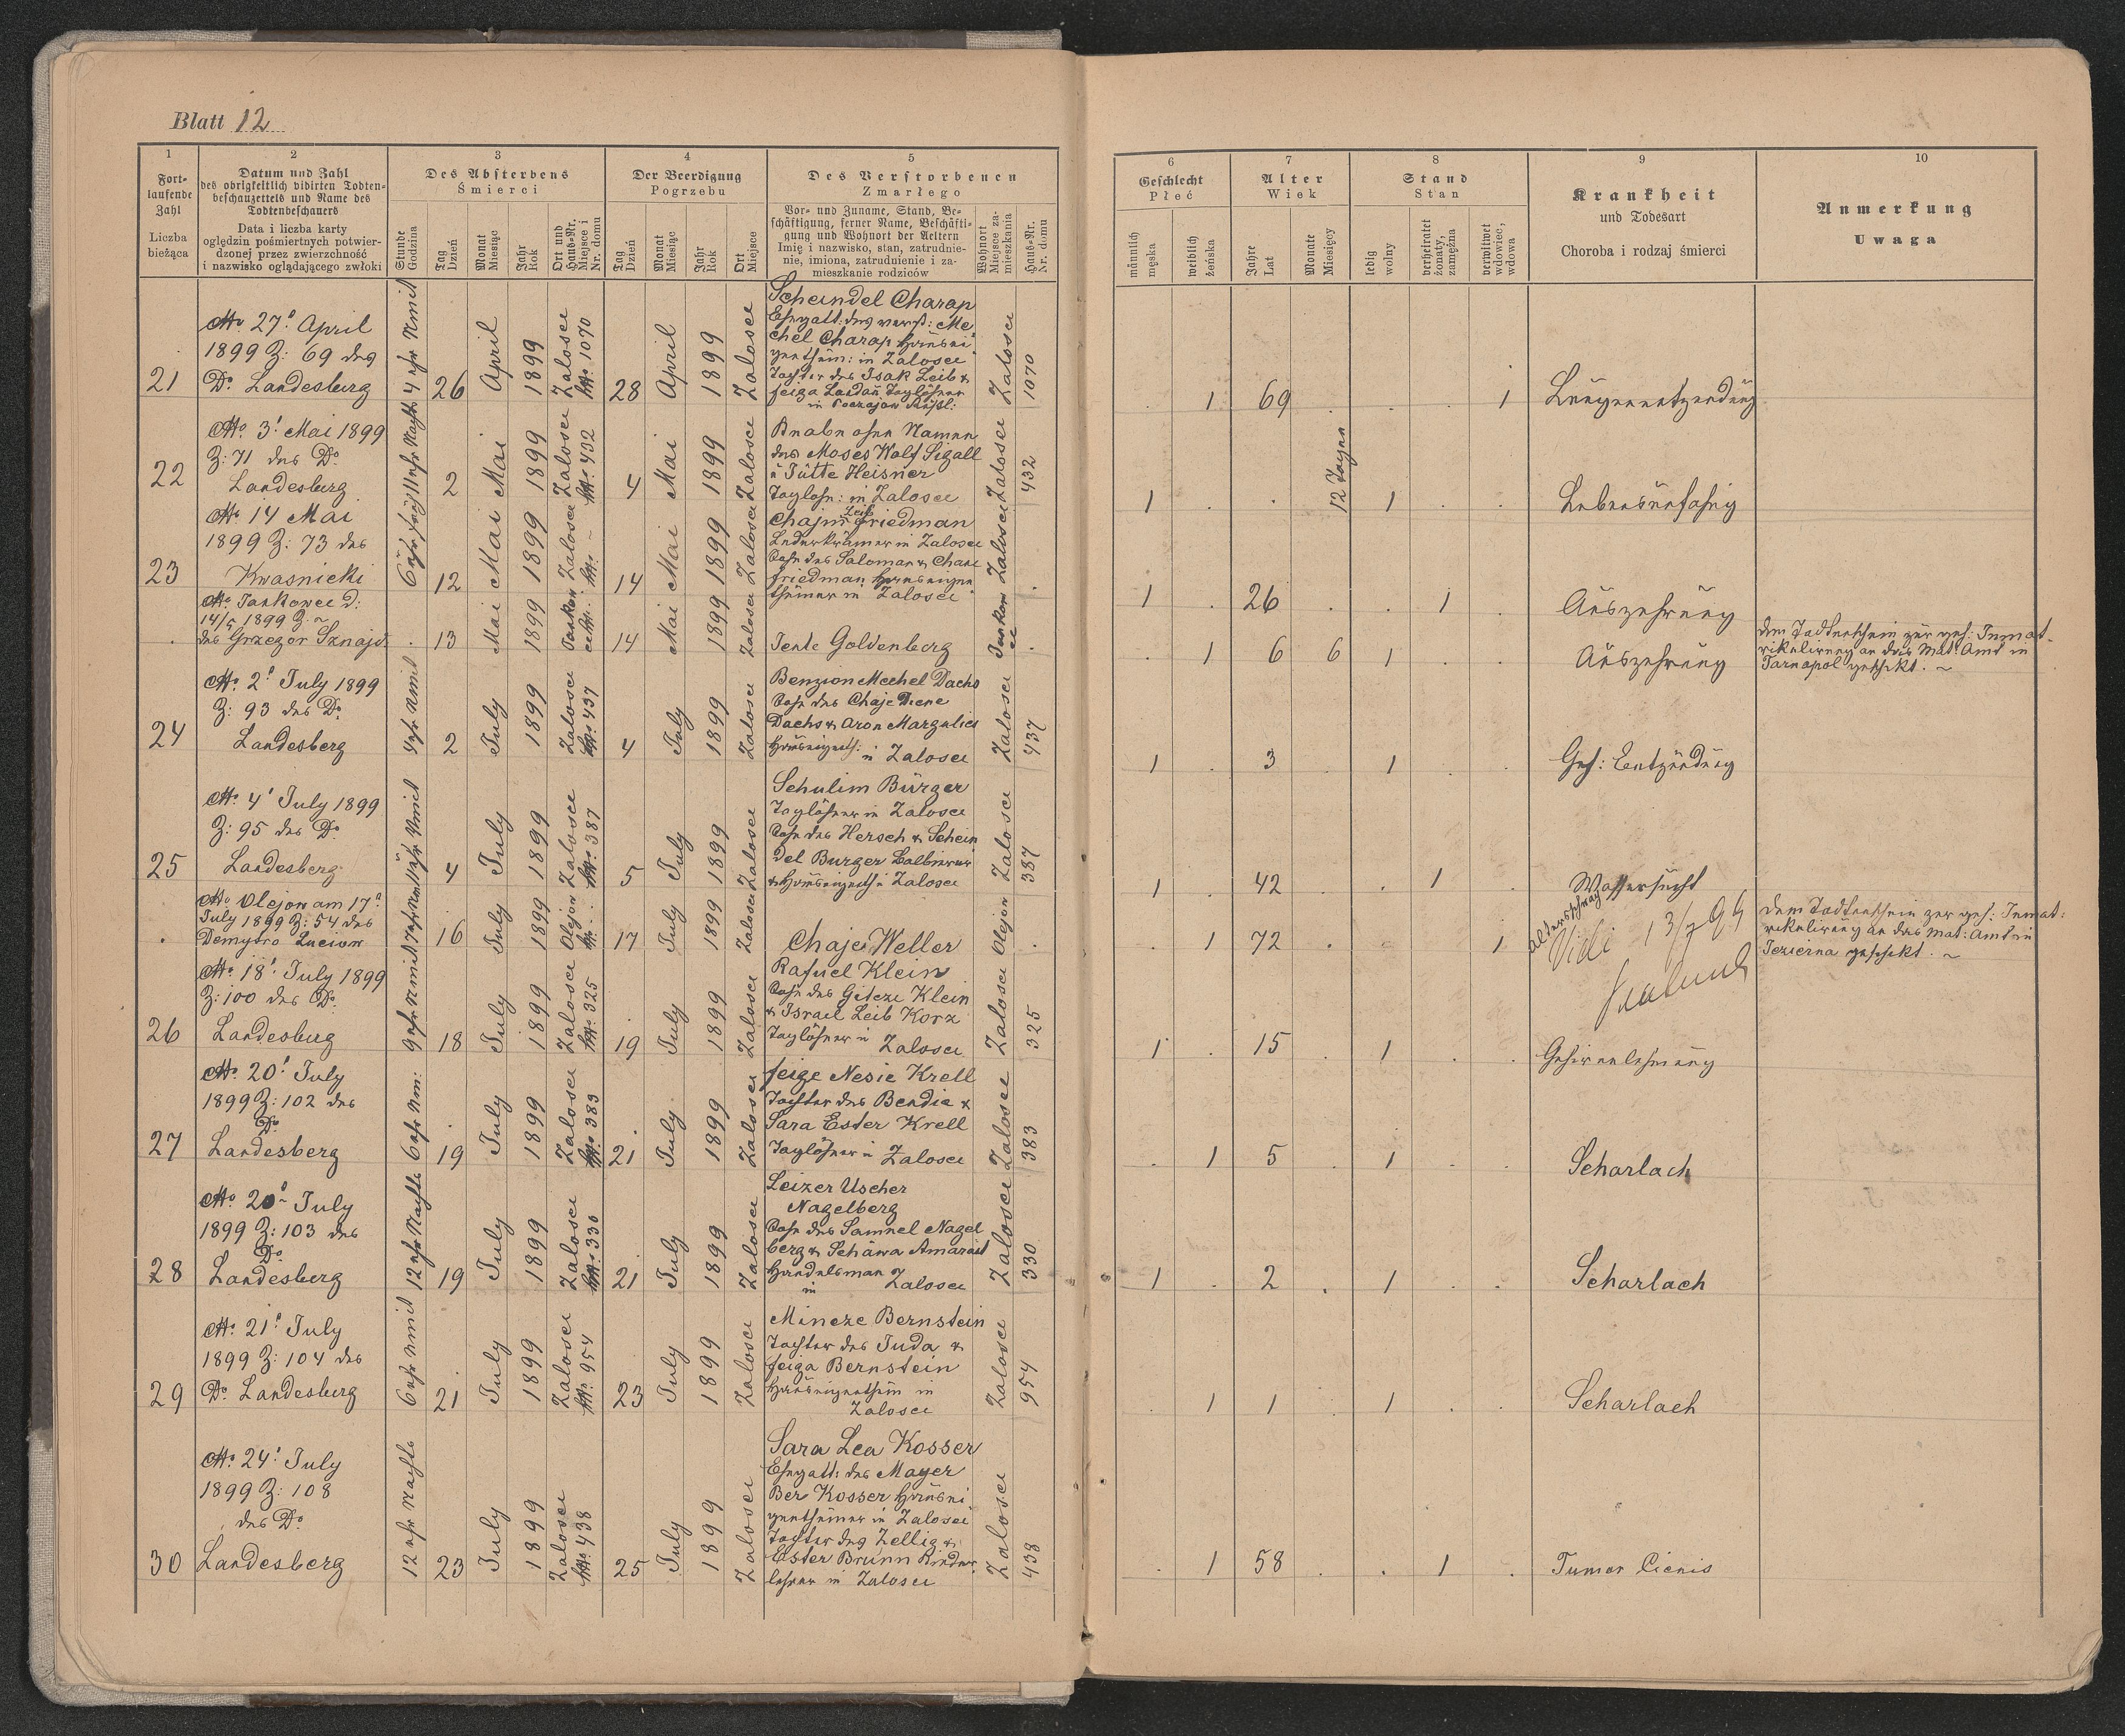 Blatt 12
1
2
3
4
5
Fort-
laufende
Zahl
Liczba
bieżąca
Datum und Zahl
des obrigkeitlich vidirten Todten-
beschauzettels und Name des
Todtenbeschauers
Data i liczba karty
oględzin pośmiertnych potwier-
dzonej przez zwierzchność
i nazwisko oglądającego zwłoki
Des Absterbens
Śmierci
Stunde
Godzina
Tag
Dzień
Monat
Miesiąc
Jahr
Rok
Ort und
Haus-Nr.
Miejsce i
Nr. domu
Der Beerdigung
Pogrzebu
Tag
Dzień
Monat
Miesiąc
Jahr
Rok
Ort
Miejsce
Des Verstorbenen
Zmarłego
Vor- und Zuname, Stand, Be-
schäftigung, ferner Name, Beschäfti-
gung und Wohnort der Aeltern
Imię i nazwisko, stan, zatrudnie-
nie, imiona, zatrudnienie i za-
mieszkanie rodziców
Wohnort
Miejsce za-
mieszkania
Haus-Nr.
Nr. domu
6
7
8
9
10
Geschlecht
Płeć
männlich
męska
weiblich
żeńska
Alter
Wiek
Jahre
Lat
Monate
Miesięcy
Stand
Stan
ledig
wolny
verheiratet
żonaty,
zamężna
verwitwet
wdowiec,
wdowa
Krankheit
und Todesart
Choroba i rodzaj śmierci
Anmerkung
Uwaga
21
27. April
1899 Z: 69 des
Dr. Landesberg
4 uhr Nmit
26
April
1899
Zalosce
1070
28
April
1899
Zalosce
Scheindel Charap
Ehegatt: des verst: Me
chel Charap Hausei
genthüm: in Zalosce
Tochter des Isak Leib &
Feiga Landau Taglöhner
in Poczajow
Zalosce
1070
1
69
1
Lungenentzündung
22
3. Mai 1899
Z: 71 des Dr.
Landesberg
11 uhr Nachts
2
Mai
1899
Zalosce
432
4
Mai
1899
Zalosce
Knabe ohne Namen
des Moses Wolf Sigall
u Jütte Heisner
Taglöhn: in Zalosce
Zalosce
432
1
12 Tagen
1
Lebensunfähig
23
14 Mai
1899 Z: 73 des
Kwasnicki
6 uhr früh
12
Mai
1899
Zalosce
14
Mai
1899
Zalosce
Chajm Leib Friedman
Lederkrämer in Zalosce
Sohn des Salomon & Chane
Friedman Hauseigen
thümer in Zalosce
Zalosce
1
26
1
Auszehrung
Jankowce d:
14/5 1899 Z. ~
des Grzegor Sznajd.
13
Mai
1899
14
Mai
1899
Zalosce
Jente Goldenberg
Jankow
ce
1
6
6
1
Auszehrung
dem Todtenschein zur gef: Inmat-
rikulirung an das Mat: Amt in
Tarnopol geschikt. ~
24
2. July 1899
Z: 93 des Dr.
Landesberg
4 uhr Nmit
2
July
1899
Zalosce
437
4
July
1899
Zalosce
Benzion Mechel Dachs
Sohn des Chaje Diene
Dachs & Aron Margulies
Hauseigenth: in Zalosce
Zalosce
437
1
3
1
Geh: Entzündung
25
4. July 1899
Z: 95 des Dr.
Landesberg
11 uhr Vmit
4
July
1899
Zalosce
387
5
July
1899
Zalosce
Schulim Bürger
Taglöhner in Zalosce
Sohn des Hersch & Schein
del Burger Balbierer
& Hauseigenth: in Zalosce
Zalosce
387
1
42
1
Wassersucht
Olejow am 17.
July 1899 Z: 54 des
Demytro Luciow
16
July
1899
Olejow
17
July
1899
Zalosce
Chaje Weller
Olejow
1
72
1
Altersschwag
Vidi 13/7 99
dem Todtenschein zur gef: Inmat:
rikulirung an das Mat: Amt in
Jezierna geschikt. ~
26
18. July 1899
Z: 100 des Dr.
Landesberg
9 uhr Nmit
18
July
1899
Zalosce
325
19
July
1899
Zalosce
Rafuel Klein
Sohn des Giteze Klein
& Israel Leib Korz
Taglöhner in Zalosce
Zalosce
325
1
15
1
Gehirnlehmung
27
20. July
1899 Z: 102 des
Dr.
Landesberg
6 uhr Nm:
19
July
1899
Zalosce
383
21
July
1899
Zalosce
Feige Nesie Krell
Tochter des Bendie &
Sara Ester Krell
Taglöhner in Zalosce
Zalosce
383
1
5
1
Scharlach
28
20. July
1899 Z: 103 des
Dr.
Landesberg
12 uhr Nachts
19
July
1899
Zalosce
330
21
July
1899
Zalosce
Leizer Uscher
Nagelberg
Sohn des Samuel Nagel
berg & Schäwa Amarast
Handelsman
in Zalosce
Zalosce
330
1
2
1
Scharlach
29
21. July
1899 Z: 104 des
Dr. Landesberg
6 uhr Nmit
21
July
1899
Zalosce
954
23
July
1899
Zalosce
Mincze Bernstein
Tochter des Juda &
Feiga Bernstein
Hauseigenthüm in
Zalosce
Zalosce
954
1
1
1
Scharlach
30
24. July
1899 Z: 108
des Dr.
Landesberg
12 uhr Nachts
23
July
1899
Zalosce
438
25
July
1899
Zalosce
Sara Lea Kosser
Ehegatt: des Mayer
Ber Kosser Hausei
genthümer in Zalosce
Tochter des Zellig &
Ester Brunn Kinder
lehrer in Zalosce
Zalosce
438
1
58
1
Tumor Lienis